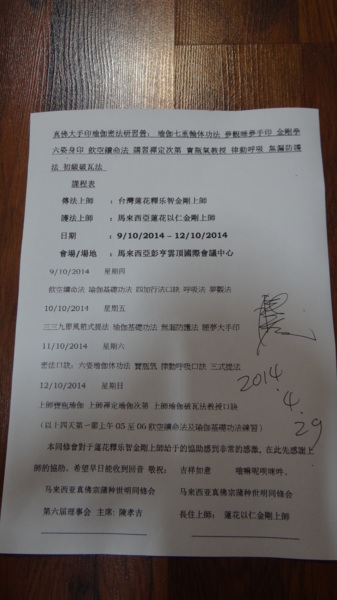 真佛大手印瑜伽密法研習營： 瑜伽七支輪体功法 夢觀睡夢手印 金剛拳
六姿身印 飲空續命法 講習禪定次第 寶瓶氣教授 律動呼吸 無漏防護
法 初級破瓦法
課程表
傳法上師 ： 台灣蓮花釋乐智金剛上師
護法上師 ： 馬來西亞蓮花以仁金剛上師
日期 ： 9/10/2014 – 12/10/2014
會場/場地 ： 馬來西亞彭亨雲頂國際會議中心
9/10/2014 星期四
飲空續命法 瑜伽基礎功法 四加行法口訣 呼吸法 夢觀法
10/10/2014 星期五
三三九節風箭式提法 瑜伽基礎功法 無漏防護法 睡夢大手印
11/10/2014 星期六
密法口訣：六姿瑜伽体功法 寶瓶氣 律動呼吸口訣 三式提法
12/10/2014 星期日
上師寶瓶瑜伽 上師禪定瑜伽次第 上師瑜伽破瓦法教授口訣
（以上四天第一節上午 05 至 06 飲空續命法及瑜伽基礎功法練習）
本同修會對于蓮花釋乐智金剛上師給于的協助感到非常的感激，在此先感謝上
師的協助，希望早日能收到回音 敬祝： 吉祥如意 嗡嘛呢唄咪吽。
马来西亚真佛宗蓮种世明同修會 马来西亚真佛宗蓮种世明同修會
第六届理事会 主席: 陳孝吉 長住上師： 蓮花以仁金剛上師
2014.
4.
29